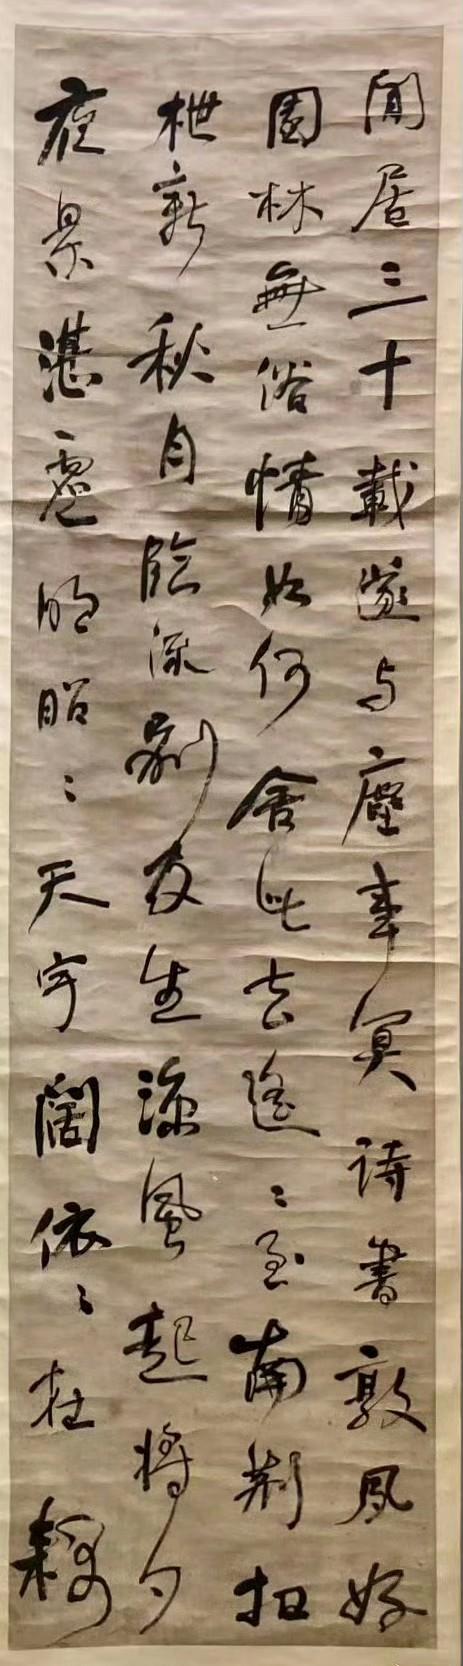 閒居三十載遂与塵事冥詩書敦夙好
園林無俗情如何舍此去遙〻至南荊扣
枻新秋月臨流別友生涼風起將夕
夜景湛虛明昭〻天宇闊依〻在耦